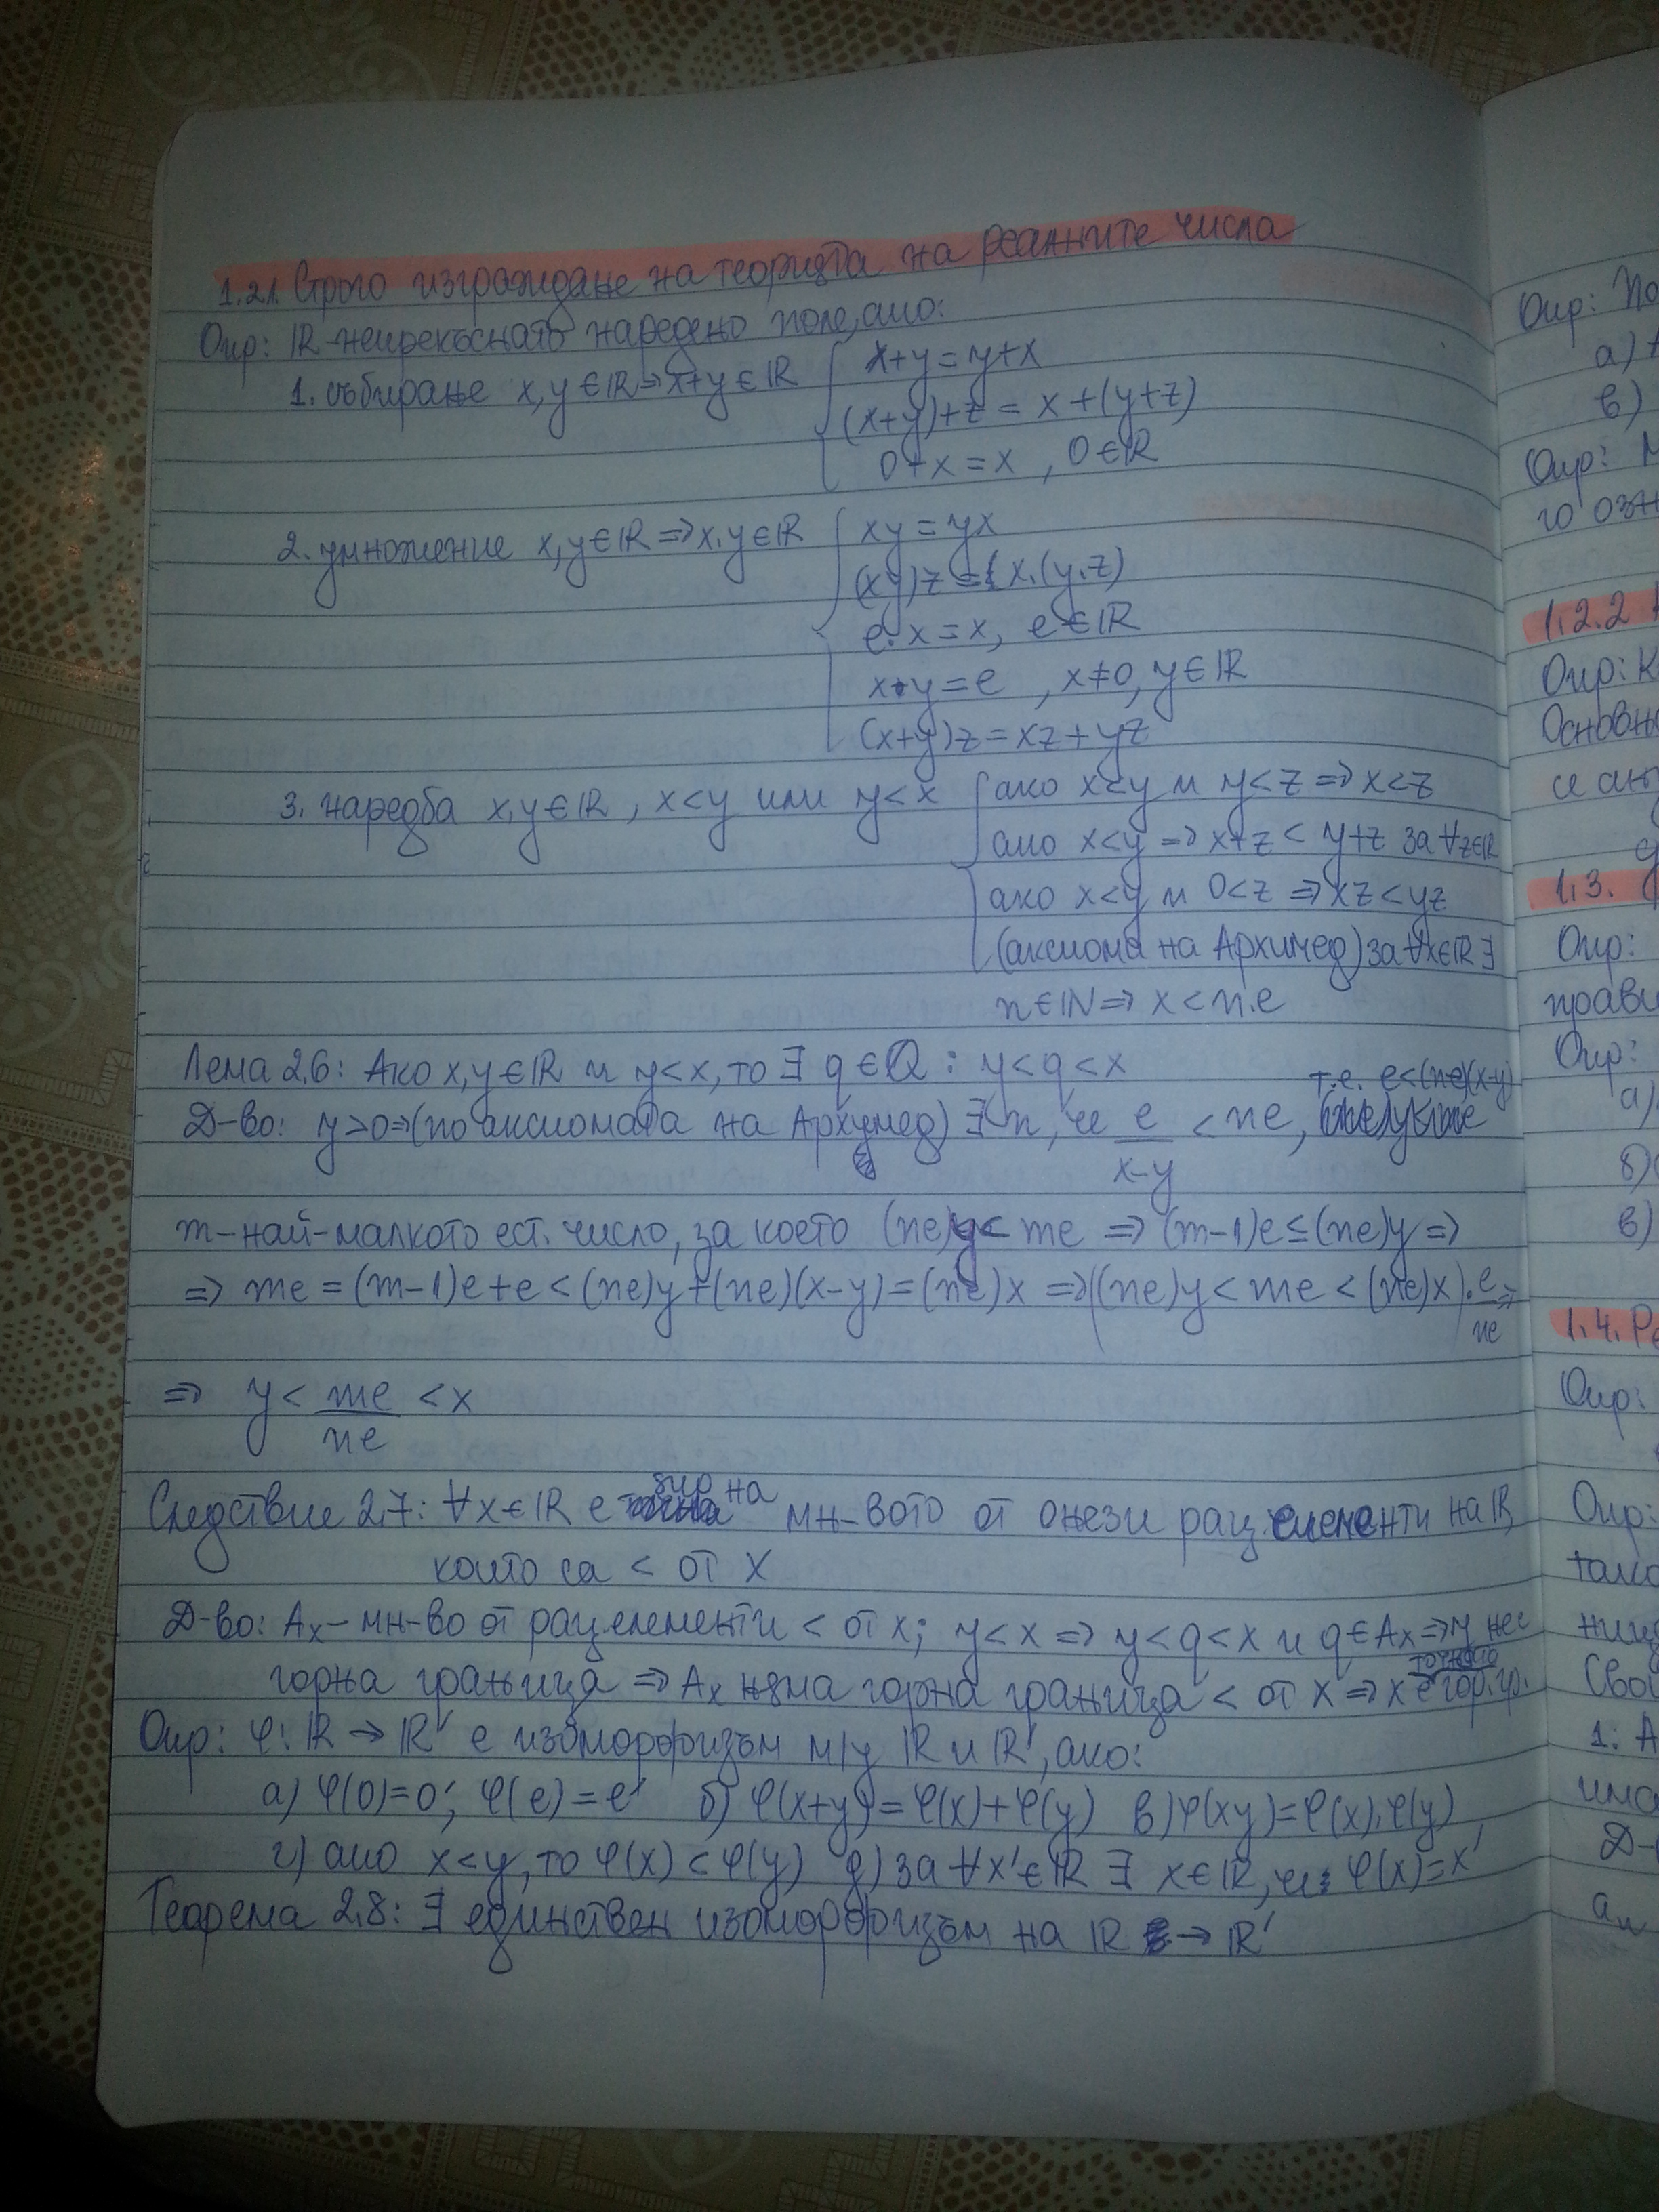 1.2.1. Строго изграждане на теорията на реалните числа
Опр: ℝ-непрекъснато наредено поле, ако:
1. събиране x,y∈ℝ⇒x+y∈ℝ { x+y=y+x
(x+y)+z = x+(y+z)
0+x=x , 0∈ℝ
2. умножение x,y∈ℝ⇒x.y∈ℝ { xy=yx
(xy)z = x.(y.z)
e.x=x, e∈ℝ
x.y=e , x≠0, y∈ℝ
(x+y)z=xz+yz
3. наредба x,y∈ℝ , x<y или y<x { ако x<y и y<z ⇒ x<z
ако x<y ⇒ x+z < y+z за ∀z∈ℝ
ако x<y и 0<z ⇒ xz<yz
(аксиома на Архимед) за ∀x∈ℝ ∃
n∈ℕ⇒ x<n.e
Лема 2.6: Ако x,y∈ℝ и y<x, то ∃ q∈ℚ : y<q<x
т.е. e<(ne)(x-y)
Д-во: y>0⇒(по аксиомата на Архимед) ∃ n, че e/(x-y) < ne,
m-най-малкото ест. число, за което (ne)y< me ⇒ (m-1)e≤(ne)y⇒
⇒ me=(m-1)e+e<(ne)y+(ne)(x-y)=(ne)x ⇒((ne)y<me<(ne)x).e/ne⇒
⇒ y< me/ne <x
Следствие 2.7: ∀x∈ℝ е sup на мн-вото от онези рац. елементи на ℝ,
които са < от x
Д-во: Aₓ-мн-во от рац елементи < от x; y<x ⇒ y<q<x и q∈Aₓ⇒y не е
горна граница ⇒ Aₓ няма горна граница < от x ⇒ x е точната гор. гр.
Опр: φ: ℝ → ℝ' е изоморфизъм м/у ℝ и ℝ', ако:
а) φ(0)=0'; φ(e)=e' б) φ(x+y)=φ(x)+φ(y) в) φ(xy)=φ(x).φ(y)
г) ако x<y, то φ(x)<φ(y) д) за ∀x'∈ℝ ∃ x∈ℝ, че φ(x)=x'
Теорема 2.8: ∃ единствен изоморфизъм на ℝ → ℝ'
Опр:
а)
в)
Опр:
1.2.2
Опр:
1.3.
Опр:
Опр:
а)
б)
в)
1.4.
Опр:
Опр:
1: